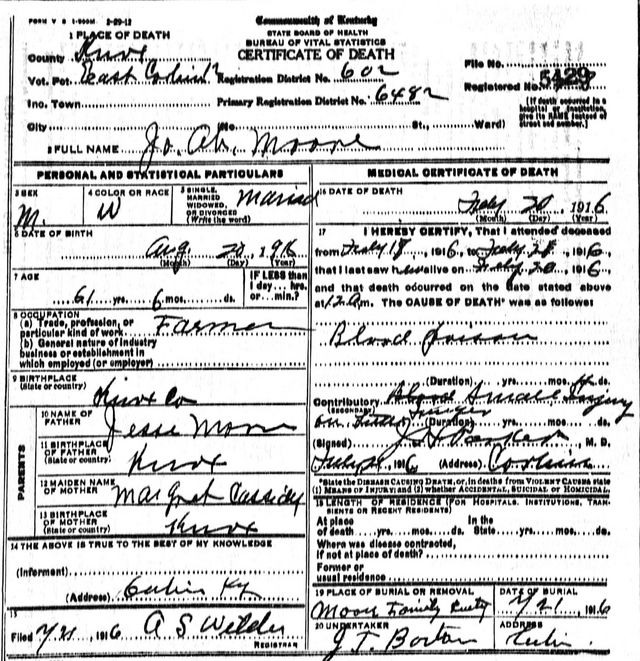 FORM V S 1-500M 2-29-12
Commonwealth of Kentucky
STATE BOARD OF HEALTH
BUREAU OF VITAL STATISTICS
CERTIFICATE OF DEATH
1 PLACE OF DEATH
County Knox
Vot. Pct. East Registration District No. 602
File No. 5429
Inc. Town Primary Registration District No. 6482
Registered No.
City (No. St., Ward)
(If death occurred in a hospital or institution, give its NAME instead of street and number.)
2 FULL NAME Jo. Ab. Moore
PERSONAL AND STATISTICAL PARTICULARS
3 SEX M.
4 COLOR OR RACE W
5 SINGLE, MARRIED WIDOWED, OR DIVORCED (Write the word) Maried
6 DATE OF BIRTH
Aug 20, 1916
(Month) (Day) (Year)
7 AGE
61 yrs. 6 mos. ds.
IF LESS than 1 day... hrs. or... min.?
8 OCCUPATION
(a) Trade, profession, or particular kind of work Farmer
(b) General nature of industry business or establishment in which employed (or employer)
9 BIRTHPLACE (State or country)
Knox Co
PARENTS
10 NAME OF FATHER Jesse Moore
11 BIRTHPLACE OF FATHER (State or country) Knox
12 MAIDEN NAME OF MOTHER Margret Cassidy
13 BIRTHPLACE OF MOTHER (State or country) Knox
14 THE ABOVE IS TRUE TO THE BEST OF MY KNOWLEDGE
(Informent)
(Address) Corbin Ky
15
Filed 2/21, 1916 A S Wilder
REGISTRAR
MEDICAL CERTIFICATE OF DEATH
16 DATE OF DEATH
Feby 20, 1916
(Month) (Day) (Year)
17 I HEREBY CERTIFY, That I attended deceased
from Feby 18, 1916, to Feby 20, 1916,
that I last saw h alive on Feby 20, 1916
and that death occurred on the date stated above
at 12 a m. The CAUSE OF DEATH* was as follows:
Blood Poison
(Duration) yrs. mos. ds.
Contributory Small Injury
(SECONDARY)
on Finger (Duration) yrs. mos. ds.
(Signed) J. Parker, M. D.
1916 (Address) Corbin
*State the DISEASE CAUSING DEATH, or, in deaths from VIOLENT CAUSES state (1) MEANS OF INJURY; and (2) whether ACCIDENTAL, SUICIDAL OR HOMICIDAL.
18 LENGTH OF RESIDENCE (FOR HOSPITALS, INSTITUTIONS, TRANSIENTS OR RECENT RESIDENTS)
At place of death yrs. mos. ds. In the State yrs. mos. ds.
Where was disease contracted, If not at place of death?
Former or usual residence
19 PLACE OF BURIAL OR REMOVAL
Moore Family
DATE OF BURIAL
2/21, 1916
20 UNDERTAKER
J T Barton
ADDRESS